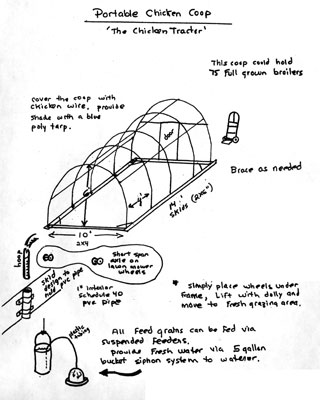 Portable Chicken Coop
'The Chicken Tractor'
This coop could hold
75 full grown broilers
cover the coop with
chicken wire, provide
shade with a blue
poly tarp.
door
4'
Brace as needed
14'
skids (2x6")
10'
2x4
hoop
skid
design to
hold PVC pipe
short span
axle on
lawn mower
wheels
1" interior
schedule 40
PVC Pipe
* simply place wheels under
frame, Lift with dolly and
move to Fresh grazing area.
plastic
tubing
All Feed grains can be Fed via
suspended Feeders.
provide Fresh water via 5 gallon
bucket siphon system to waterer.